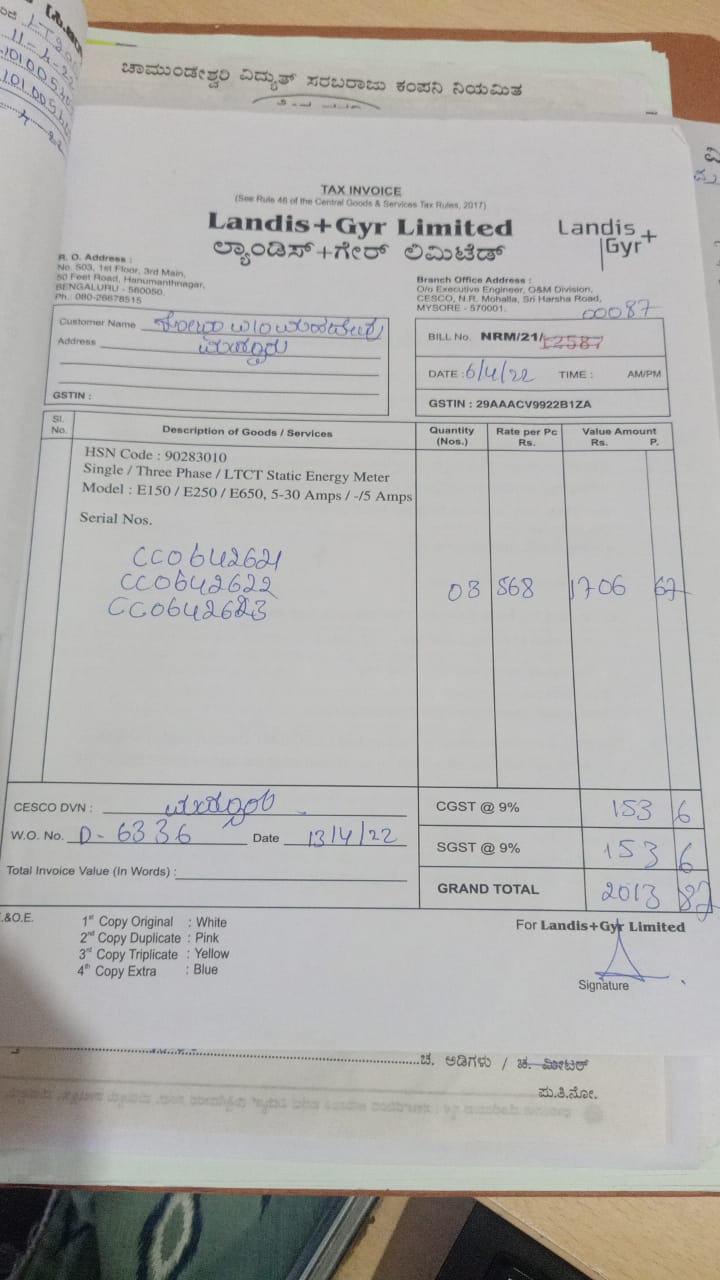 11-4-22
ಚಾಮುಂಡೇಶ್ವರಿ ವಿದ್ಯುತ್ ಸರಬರಾಜು ಕಂಪನಿ ನಿಯಮಿತ
TAX INVOICE
(See Rule 46 of the Central Goods & Services Tax Rules, 2017)
Landis+Gyr Limited
ಲ್ಯಾಂಡಿಸ್+ಗೇರ್ ಲಿಮಿಟೆಡ್
Landis+
Gyr
R. O. Address :
No. 503, 1st Floor, 3rd Main,
50 Feet Road, Hanumanthnagar,
BENGALURU - 560050.
Ph.: 080-26678515
Branch Office Address :
O/o Executive Engineer, O&M Division,
CESCO, N.R. Mohalla, Sri Harsha Road,
MYSORE - 570001.
00087
Customer Name
Address
GSTIN :
BILL No. NRM/21/12587
DATE : 6/4/22 TIME : AM/PM
GSTIN : 29AAACV9922B1ZA
Sl. No. Description of Goods / Services Quantity (Nos.) Rate per Pc Rs. Value Amount Rs. P.
HSN Code : 90283010
Single / Three Phase / LTCT Static Energy Meter
Model : E150 / E250 / E650, 5-30 Amps / -/5 Amps
Serial Nos.
CC0642621
CC0642622 03 568 1706 67
CC0642623
CESCO DVN :
CGST @ 9% 153 6
W.O. No. D-6336 Date 13/4/22
SGST @ 9% 153 6
Total Invoice Value (In Words) :
GRAND TOTAL 2013 82
E.&O.E.
1st Copy Original : White
2nd Copy Duplicate : Pink
3rd Copy Triplicate : Yellow
4th Copy Extra : Blue
For Landis+Gyr Limited
Signature
ಚ. ಅಡಿಗಳು / ಚ. ಮೀಟರ್
ಮ.ತಿ.ನೋ.